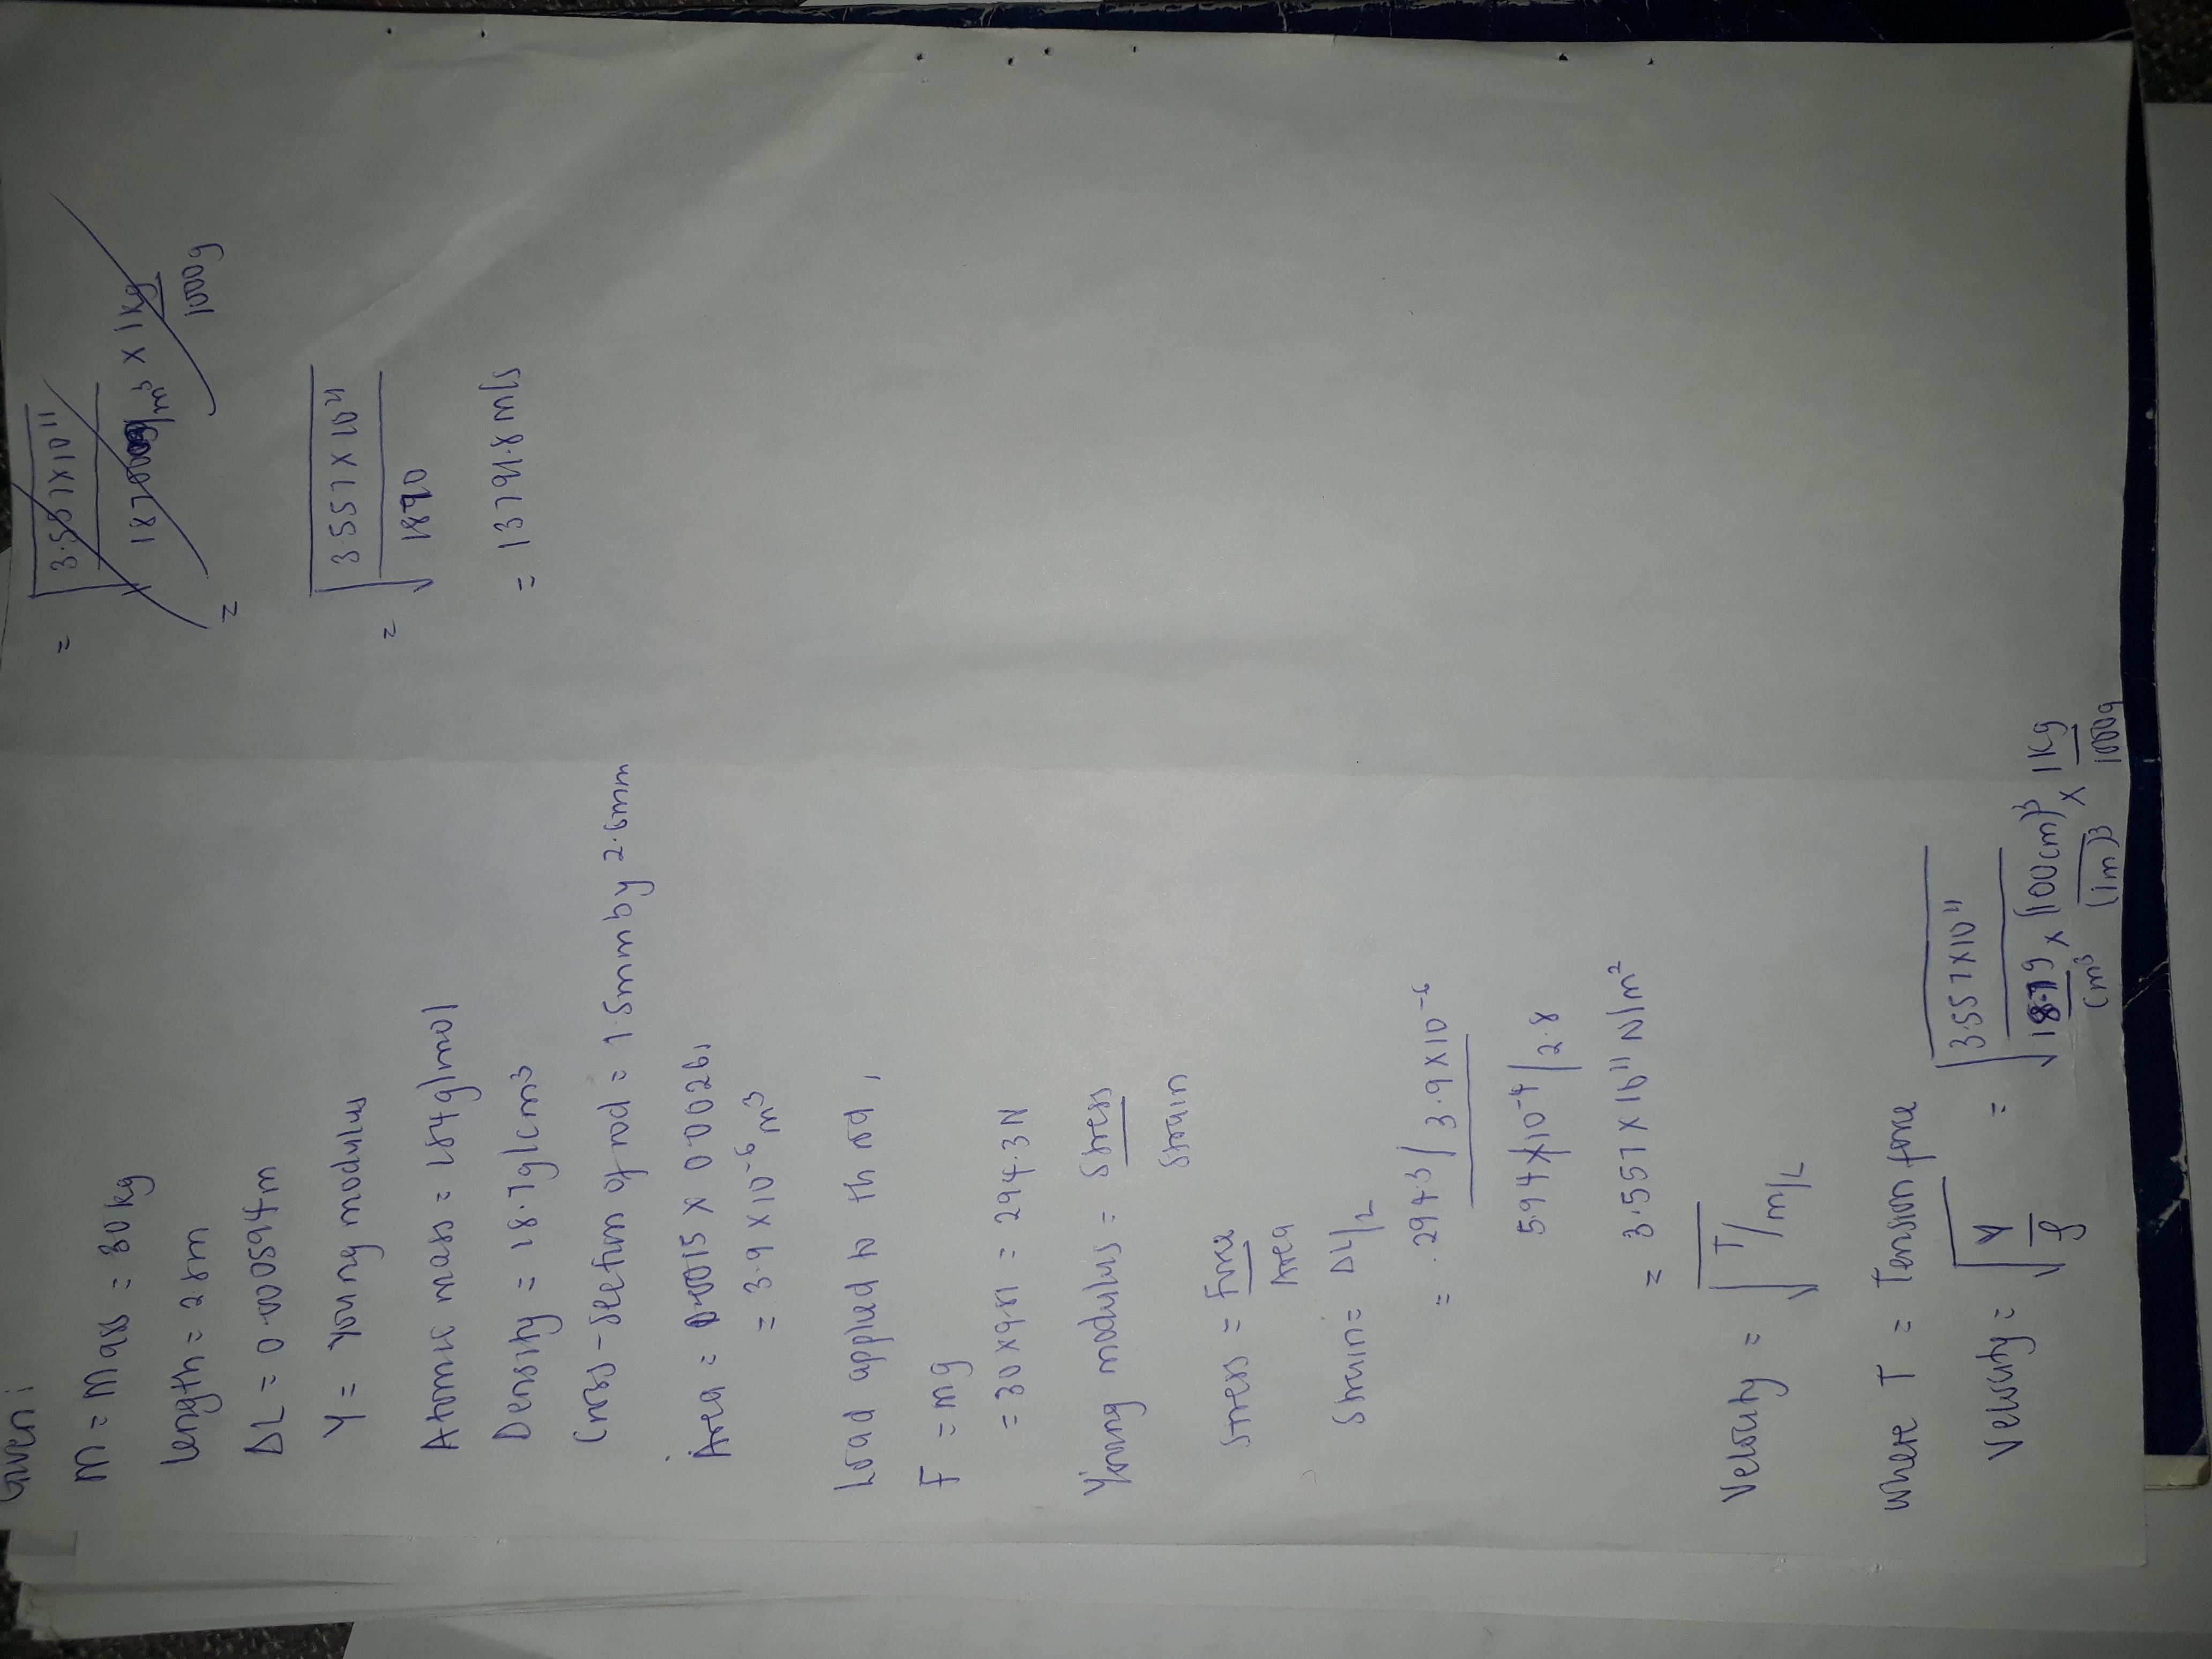 Given:
M = Mass = 30kg
Length = 2.8m
ΔL = 0.000594m
Y = Young modulus
Atomic mass = 184g/mol
Density = 18.7g/cm³
Cross-section of rod = 1.5mm by 2.6mm
Area = 0.0015 × 0.0026,
= 3.9 × 10⁻⁶ m³
Load applied to th rod,
F = mg
= 30 × 9.81 = 294.3N
Young modulus = Stress
Strain
Stress = Force
Area
Strain = ΔL/L
= 294.3/3.9×10⁻⁶
5.94×10⁻⁴/2.8
= 3.557 × 10¹¹ N/m²
Velocity = √T/m/L
where T = Tension force
Velocity = √Y/ρ = √3.557×10¹¹
18.7g × (100cm)³ × 1kg
cm³ (1m)³ 1000g
= √3.557×10¹¹
/m³ × 1kg
1000g
=
= √3.557 × 10¹¹
1870
= 13791.8 m/s